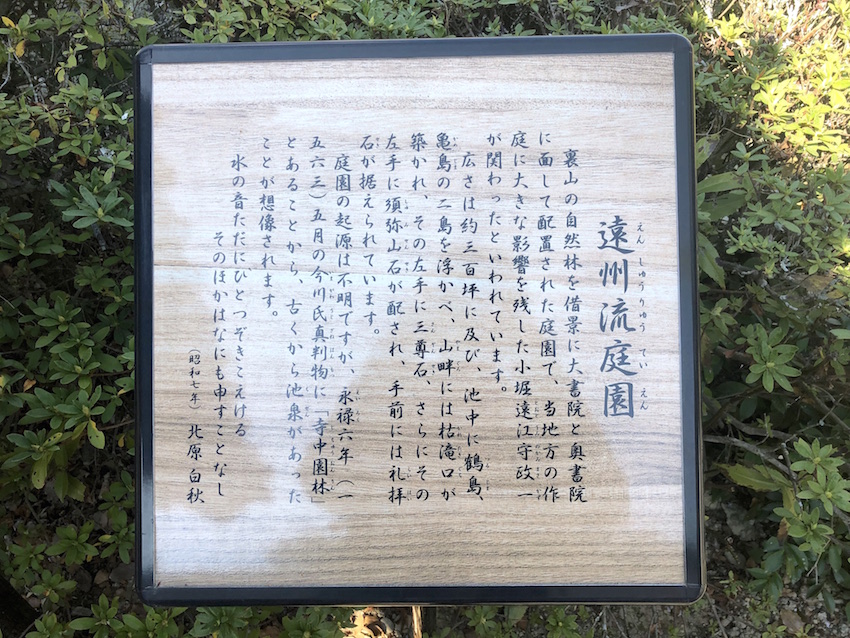 遠州流庭園
えんしゅうりゅうていえん
裏山の自然林を借景に大書院と奥書院
に面して配置された庭園で、当地方の作
庭に大きな影響を残した小堀遠江守政一
が関わったといわれています。
広さは約三百坪に及び、池中に鶴島、
亀島の二島を浮かべ、山畔には枯滝口が
築かれ、その左手に三尊石、さらにその
左手に須弥山石が配され、手前には礼拝
石が据えられています。
庭園の起源は不明ですが、永禄六年（一
五六三）五月の今川氏真判物に「寺中園林」
とあることから、古くから池泉があった
ことが想像されます。
水の音ただにひとつぞきこえける
そのほかはなにも申すことなし
（昭和七年）北原白秋